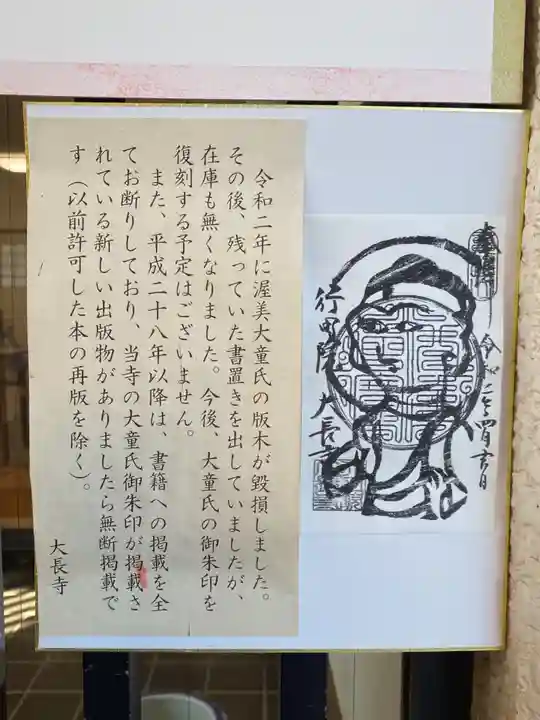 奉拝
令和二年四月吉日
行司院 大長寺
令和二年に渥美大童氏の版木が毀損しました。
その後、残っていた書置きを出していましたが、
在庫も無くなりました。今後、大童氏の御朱印を
復刻する予定はございません。
また、平成二十八年以降は、書籍への掲載を全
てお断りしており、当寺の大童氏御朱印が掲載さ
れている新しい出版物がありましたら無断掲載で
す（以前許可した本の再版を除く）。
大長寺